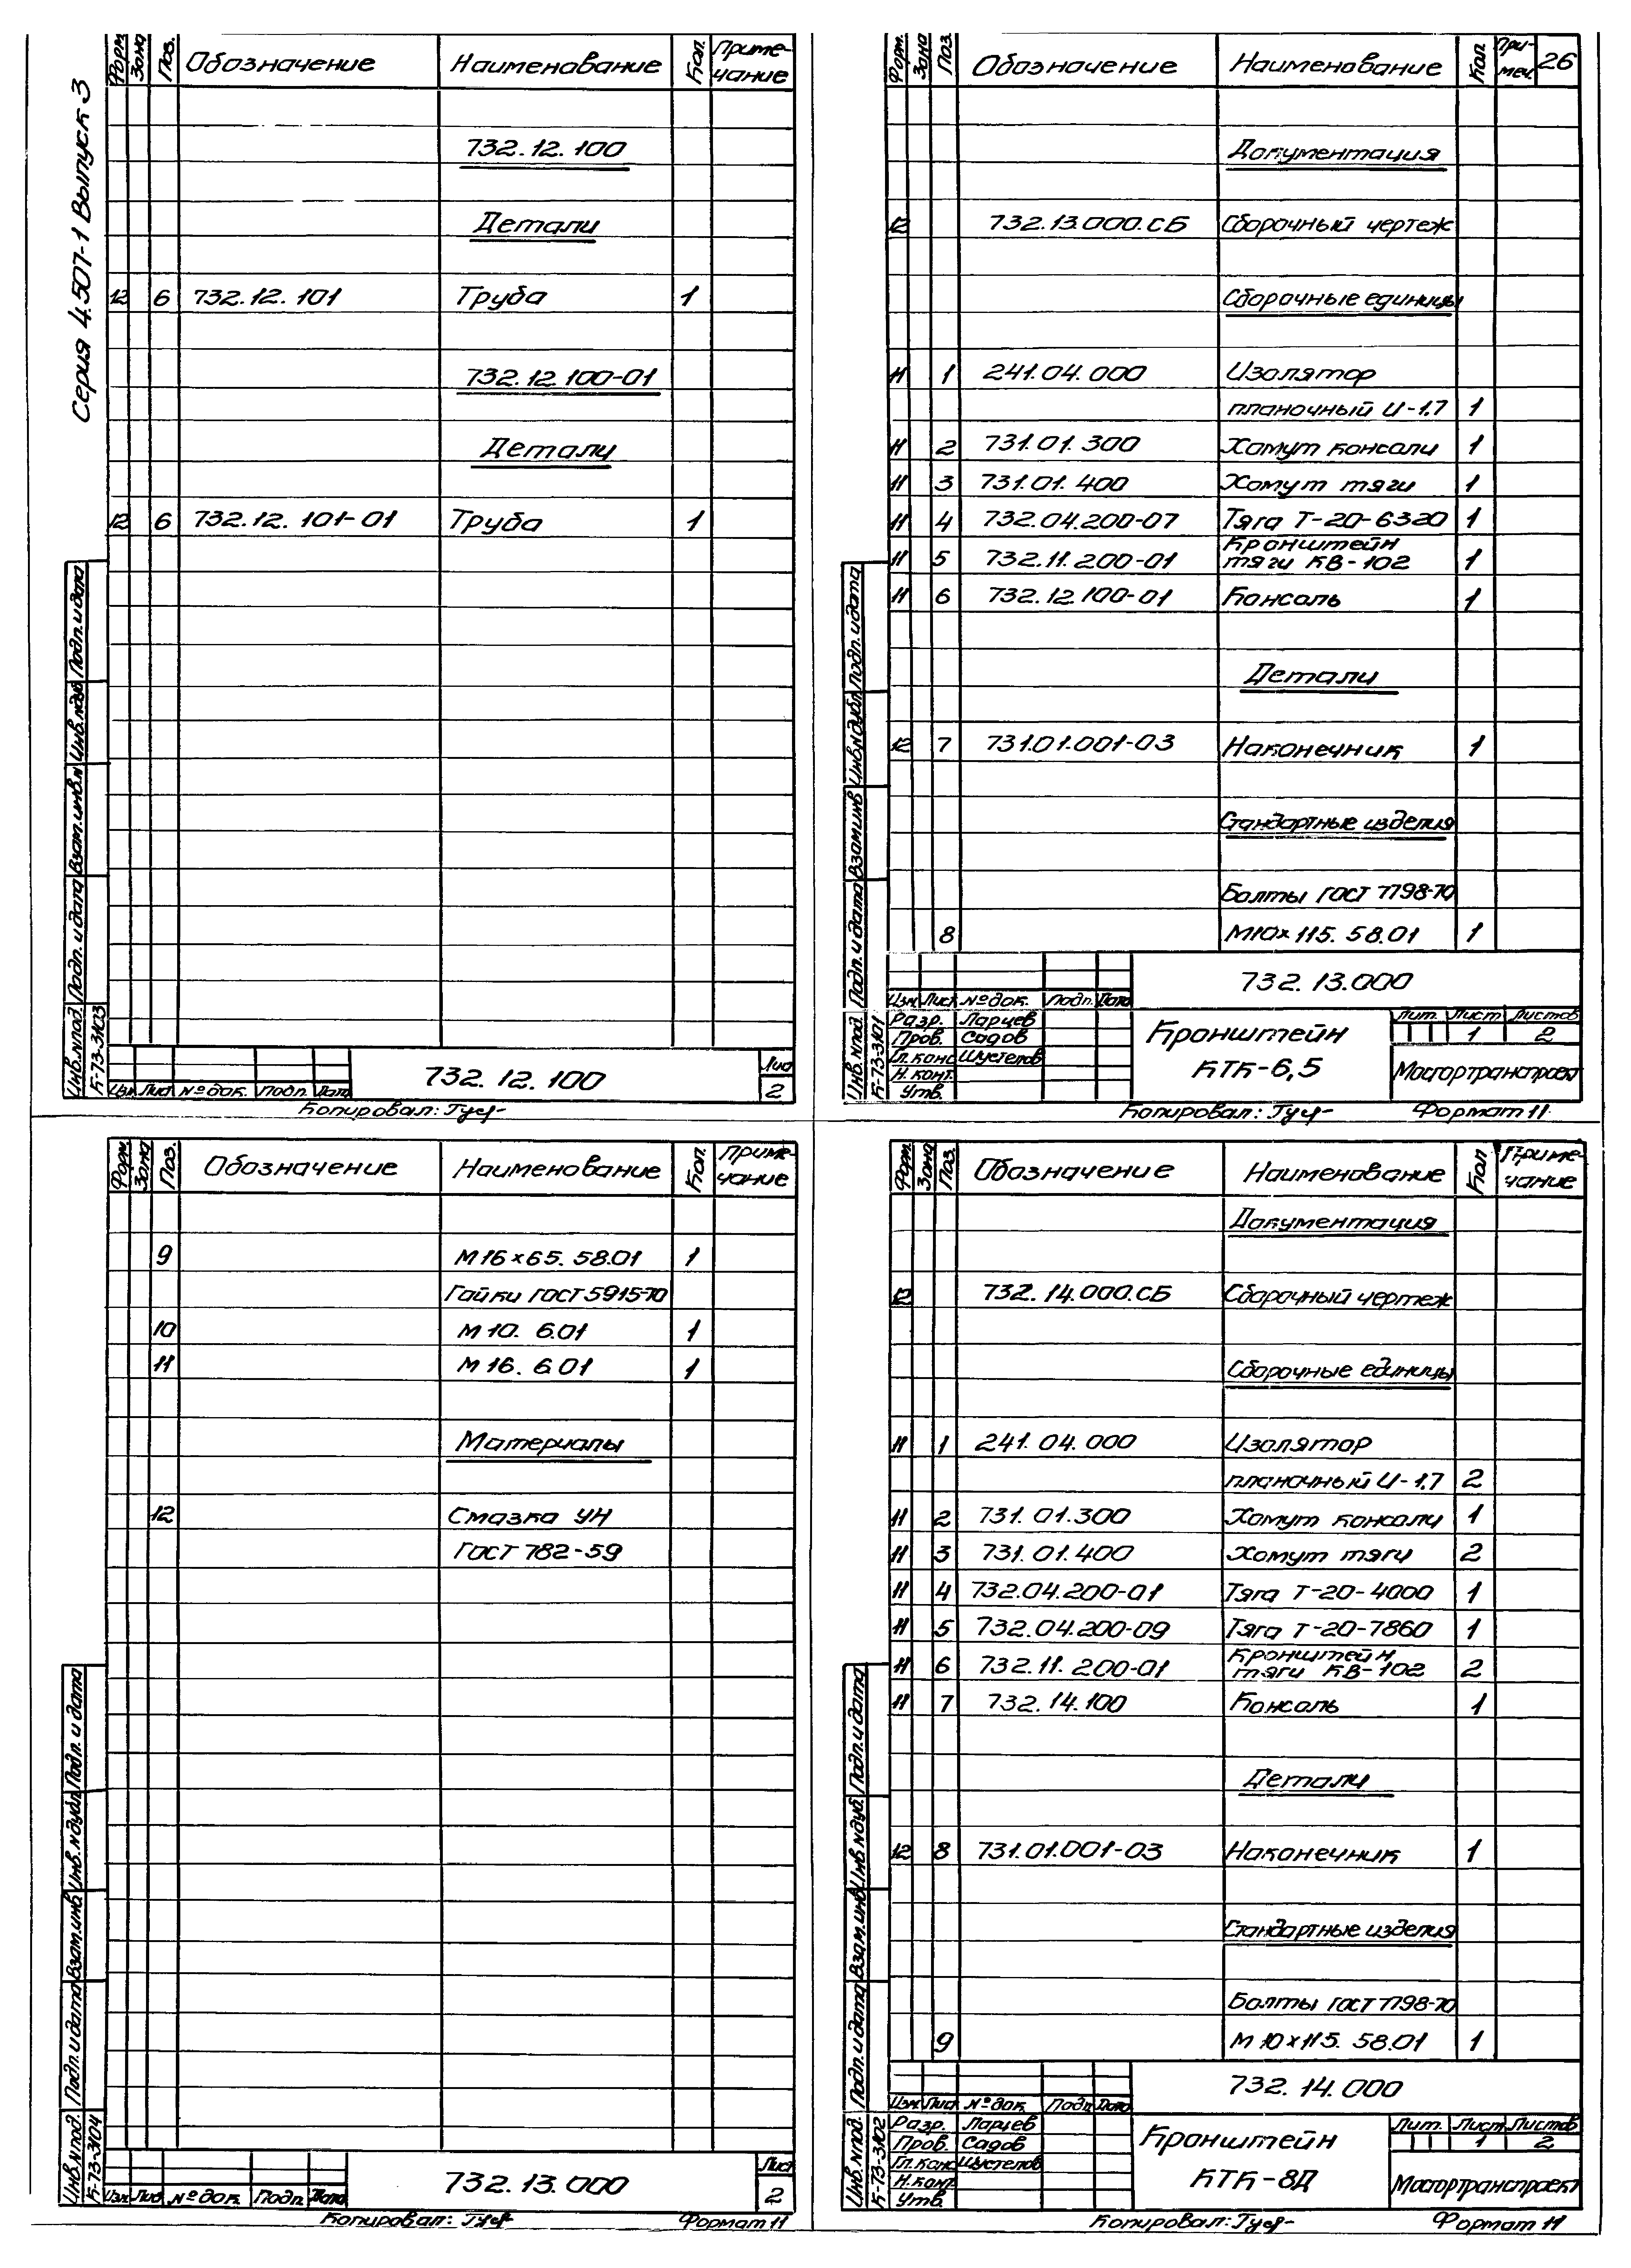 Серия 4.507-1 Выпуск 3
Форм. Зона Поз. Обозначение Наименование Кол. Приме-
чание
732.12.100
Детали
12 6 732.12.101 Труба 1
732.12.100-01
Детали
12 6 732.12.101-01 Труба 1
Подп. и дата
Инв.№дуб
Взам.инв.№
Подп. и дата
Инв.№под.
К-73-3103
Изм. Лист № док. Подп. Дата
732.12.100
Лист
2
Копировал: Гусr-
Форм. Зона Поз. Обозначение Наименование Кол. При-
меч. 26
Документация
12 732.13.000.СБ Сборочный чертеж
Сборочные единицы
11 1 241.04.000 Изолятор
планочный И-1.7 1
11 2 731.01.300 Хомут консоли 1
11 3 731.01.400 Хомут тяги 1
11 4 732.04.200-07 Тяга Т-20-6320 1
Кронштейн
11 5 732.11.200-01 тяги КВ-102 1
11 6 732.12.100-01 Консоль 1
Детали
12 7 731.01.001-03 Наконечник 1
Стандартные изделия
Болты ГОСТ 7798-70
8 М10х115.58.01 1
Подп. и дата
Инв.№дубл
Взам.инв
Подп. и дата
Инв.№под.
К-73-3101
732.13.000
Изм. Лист № док. Подп. Дата
Разр. Ларцев
Пров. Садов
Гл.конс Шустелов
Н. конт.
Утв.
Кронштейн
КТК-6,5
Лит. Лист Листов
1 2
Мосгортранспроект
Копировал: Гусr-
Формат 11
Форм. Зона Поз. Обозначение Наименование Кол. Приме-
чание
9 М16х65.58.01 1
Гайки ГОСТ 5915-70
10 М10. 6.01 1
11 М16. 6.01 1
Материалы
12 Смазка УН
ГОСТ 782-59
Подп. и дата
Инв.№дубл
Взам.инв
Подп. и дата
Инв.№под.
К-73-3104
Изм. Лист № док. Подп. Дата
732.13.000
Лист
2
Копировал: Гусr-
Формат 11
Форм. Зона Поз. Обозначение Наименование Кол Приме-
чание
Документация
12 732.14.000.СБ Сборочный чертеж
Сборочные единицы
11 1 241.04.000 Изолятор
планочный И-1.7 2
11 2 731.01.300 Хомут консоли 1
11 3 731.01.400 Хомут тяги 2
11 4 732.04.200-01 Тяга Т-20-4000 1
11 5 732.04.200-09 Тяга Т-20-7860 1
Кронштейн
11 6 732.11.200-01 тяги КВ-102 2
11 7 732.14.100 Консоль 1
Детали
12 8 731.01.001-03 Наконечник 1
Стандартные изделия
Болты ГОСТ 7798-70
9 М10х115.58.01 1
Подп. и дата
Инв.№дуб.
Взам.инв
Подп. и дата
Инв.№под.
К-73-3102
732.14.000
Изм. Лист № док. Подп. Дата
Разр. Ларцев
Пров. Садов
Гл.конс Шустелов
Н.конт.
Утв.
Кронштейн
КТК-8Д
Лит. Лист Листов
1 2
Мосгортранспроект
Копировал: Гусr-
Формат 11